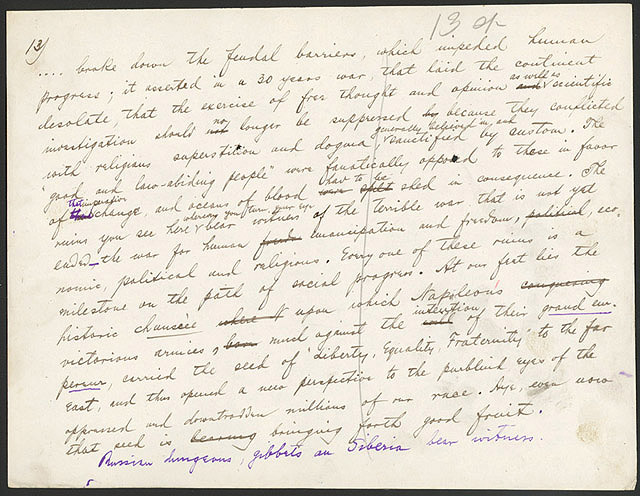 13)
13 of
.... broke down the feudal barriers, which impeded human
progress; it asserted in a 30 years war, that laid the continent
desolate, that the exercise of free thought and opinion as well as and scientific
investigation should not no longer be suppressed by because they conflicted
"with religious superstition and dogma generally believed in, and sanctified by custom. The
good and law-abiding people" were fanatically opposed to these in favor
of that change, and oceans of blood had to be were spilt shed in consequence. The
ruins you see here & wherever you turn your eye bear witness of the terrible war that is not yet
ended – the war for human freedo emancipation and freedom, political, eco-
nomic, political and religious. Every one of these ruins is a
milestone on the path of social progress. At our feet lies the
historic chaussée where I upon which Napoleons conquering
victorious armies, much against the intention of their grand em-
pereur, carried the seed of "Liberty, Equality, Fraternity" to the far
East, and thus opened a new perspective to the purblind eyes of the
oppressed and downtrodden millions of our race. Aye, even now
that seed is bearing bringing forth good fruit.
Russian dungeons, gibbets an Siberia bear witness.